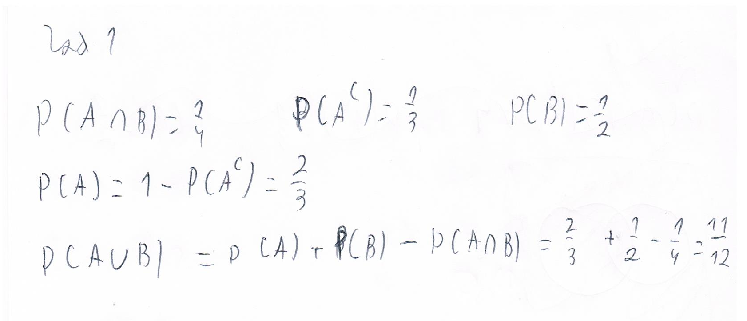 Zad 1
P(A∩B) = 1/4 P(A^C) = 1/3 P(B) = 1/2
P(A) = 1 - P(A^C) = 2/3
P(A∪B) = P(A) + P(B) - P(A∩B) = 2/3 + 1/2 - 1/4 = 11/12